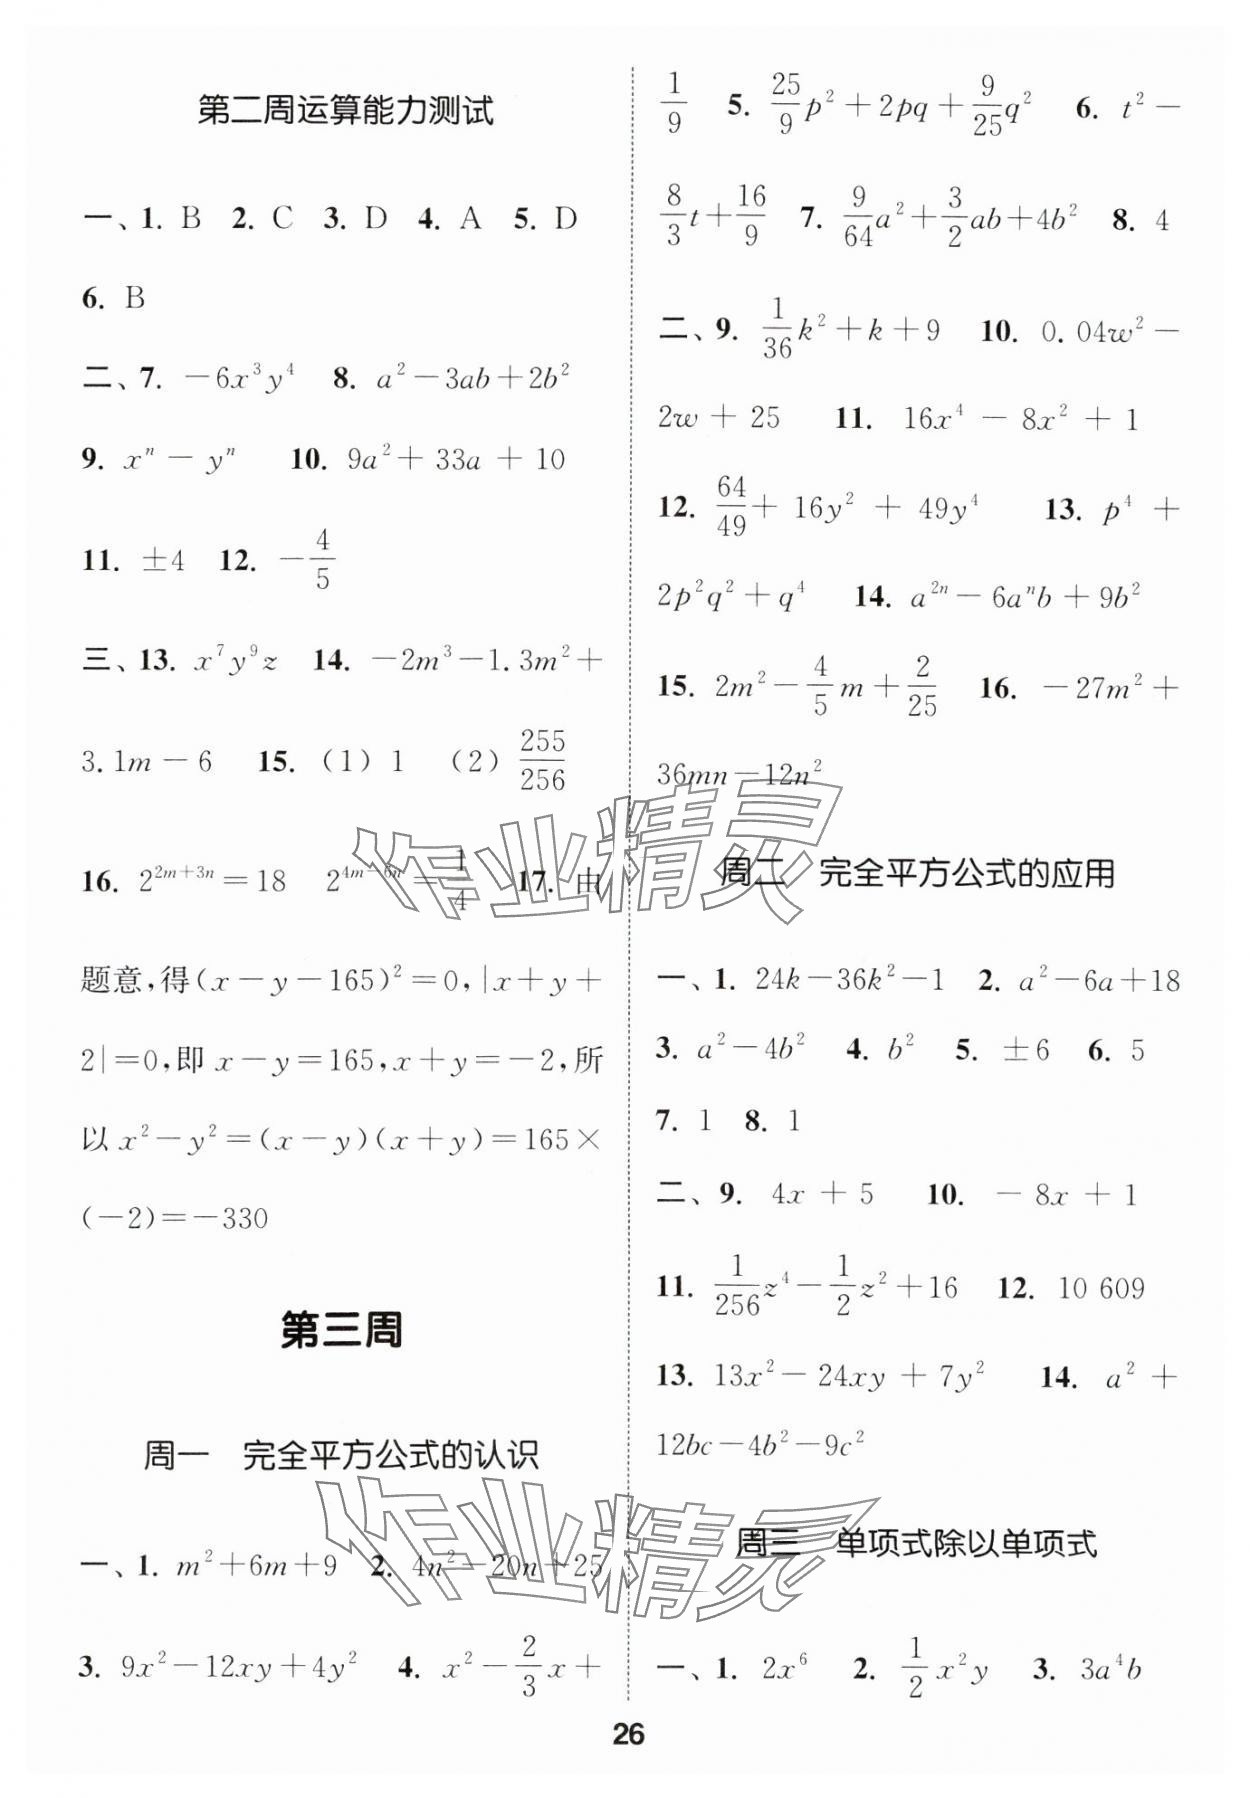 第二周运算能力测试
一、1. B 2. C 3. D 4. A 5. D
6. B
二、7. −6x³y⁴ 8. a²−3ab+2b²
9. xⁿ − yⁿ 10. 9a²+ 33a + 10
11. ±4 12. −4/5
三、13. x⁷y⁹z 14. −2m³−1.3m²+
3.1m − 6 15. (1) 1 (2) 255/256
16. 2²ᵐ⁺³ⁿ=18 2⁴ᵐ⁻⁶ⁿ=1/4 17. 由
题意,得(x−y−165)²=0,|x+y+
2|=0,即 x−y=165,x+y=−2,所
以 x²−y²=(x−y)(x+y)=165×
(−2)=−330
第三周
周一 完全平方公式的认识
一、1. m²+6m+9 2. 4n²−20n+25
3. 9x²−12xy+4y² 4. x²−2/3x+
1/9 5. 25/9p²+2pq+9/25q² 6. t²−
8/3t+16/9 7. 9/64a²+3/2ab+4b² 8. 4
二、9. 1/36k²+k+9 10. 0.04w²−
2w + 25 11. 16x⁴ − 8x² + 1
12. 64/49+ 16y² + 49y⁴ 13. p⁴ +
2p²q²+q⁴ 14. a²ⁿ−6aⁿb+9b²
15. 2m²−4/5m+2/25 16. −27m²+
36mn−12n²
周二 完全平方公式的应用
一、1. 24k−36k²−1 2. a²−6a+18
3. a²−4b² 4. b² 5. ±6 6. 5
7. 1 8. 1
二、9. 4x + 5 10. − 8x + 1
11. 1/256z⁴−1/2z²+16 12. 10 609
13. 13x²−24xy+7y² 14. a² +
12bc−4b²−9c²
周三 单项式除以单项式
一、1. 2x⁶ 2. 1/2x²y 3. 3a⁴b
26
作业精灵
作业精灵